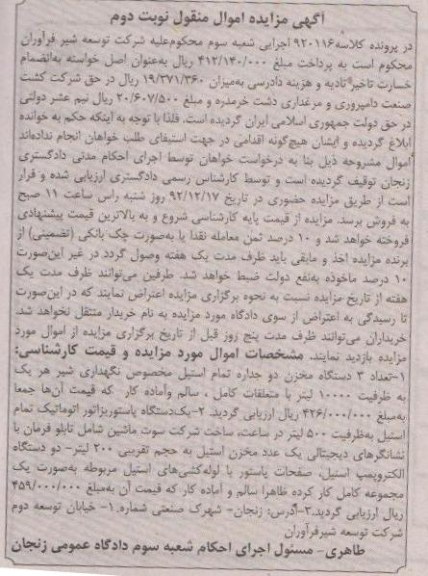 آگهی مزایده اموال منقول نوبت دوم
در پرونده کلاسه ۹۲۰۱۱۶ اجرایی شعبه سوم محکوم‌علیه شرکت توسعه شیر فرآوران
محکوم است به پرداخت مبلغ ۴۱۲/۱۴۰/۰۰۰ ریال به‌عنوان اصل خواسته به‌انضمام
خسارت تاخیر تادیه و هزینه دادرسی به‌میزان ۱۹/۳۷۱/۳۶۰ ریال در حق شرکت کشت
صنعت دامپروری و مرغداری دشت خرمدره و مبلغ ۲۰/۶۰۷/۵۰۰ ریال نیم عشر دولتی
در حق دولت جمهوری اسلامی ایران گردیده است. فلذا با توجه به اینکه حکم به خوانده
ابلاغ گردیده و ایشان هیچ‌گونه اقدامی در جهت استیفای طلب خواهان انجام نداده‌اند
اموال مشروحه ذیل بنا به درخواست خواهان توسط اجرای احکام مدنی دادگستری
زنجان توقیف گردیده است و توسط کارشناس رسمی دادگستری ارزیابی شده و قرار
است از طریق مزایده حضوری در تاریخ ۹۲/۱۲/۱۷ روز شنبه راس ساعت ۱۱ صبح
به فروش برسد. مزایده از قیمت پایه کارشناسی شروع و به بالاترین قیمت پیشنهادی
فروخته خواهد شد و ۱۰ درصد ثمن معامله نقدا یا به‌صورت چک بانکی (تضمینی) از
برنده مزایده اخذ و مابقی باید ظرف مدت یک هفته وصول گردد در غیر این‌صورت
۱۰ درصد ماخوذه به‌نفع دولت ضبط خواهد شد. طرفین می‌توانند ظرف مدت یک
هفته از تاریخ مزایده نسبت به نحوه برگزاری مزایده اعتراض نمایند که در این‌صورت
تا رسیدگی به اعتراض از سوی دادگاه مورد مزایده به نام خریدار منتقل نخواهد شد.
خریداران می‌توانند ظرف مدت پنج روز قبل از تاریخ برگزاری مزایده از اموال مورد
مزایده بازدید نمایند. مشخصات اموال مورد مزایده و قیمت کارشناسی:
۱-تعداد ۳ دستگاه مخزن دو جداره تمام استیل مخصوص نگهداری شیر هر یک
به ظرفیت ۱۰۰۰۰ لیتر با متعلقات کامل ، سالم وآماده کار که قیمت آن‌ها جمعا
به‌مبلغ ۴۲۶/۰۰۰/۰۰۰ ریال ارزیابی گردید. ۲-یک‌دستگاه پاستوریزاتور اتوماتیک تمام
استیل به‌ظرفیت ۵۰۰ لیتر در ساعت، ساخت شرکت سوت ماشین شامل تابلو فرمان با
نشانگرهای دیجیتالی یک عدد مخزن استیل به حجم تقریبی ۲۰۰ لیتر- دو دستگاه
الکتروپمپ استیل، صفحات پاستور با لوله‌کشی‌های استیل مربوطه به‌صورت یک
مجموعه کامل کار کرده ظاهرا سالم و آماده کار که قیمت آن به‌مبلغ ۴۵۹/۰۰۰/۰۰۰
ریال ارزیابی گردید.۳-آدرس: زنجان- شهرک صنعتی شماره ۱- خیابان توسعه دوم
شرکت توسعه شیرفرآوران
طاهری- مسئول اجرای احکام شعبه سوم دادگاه عمومی زنجان